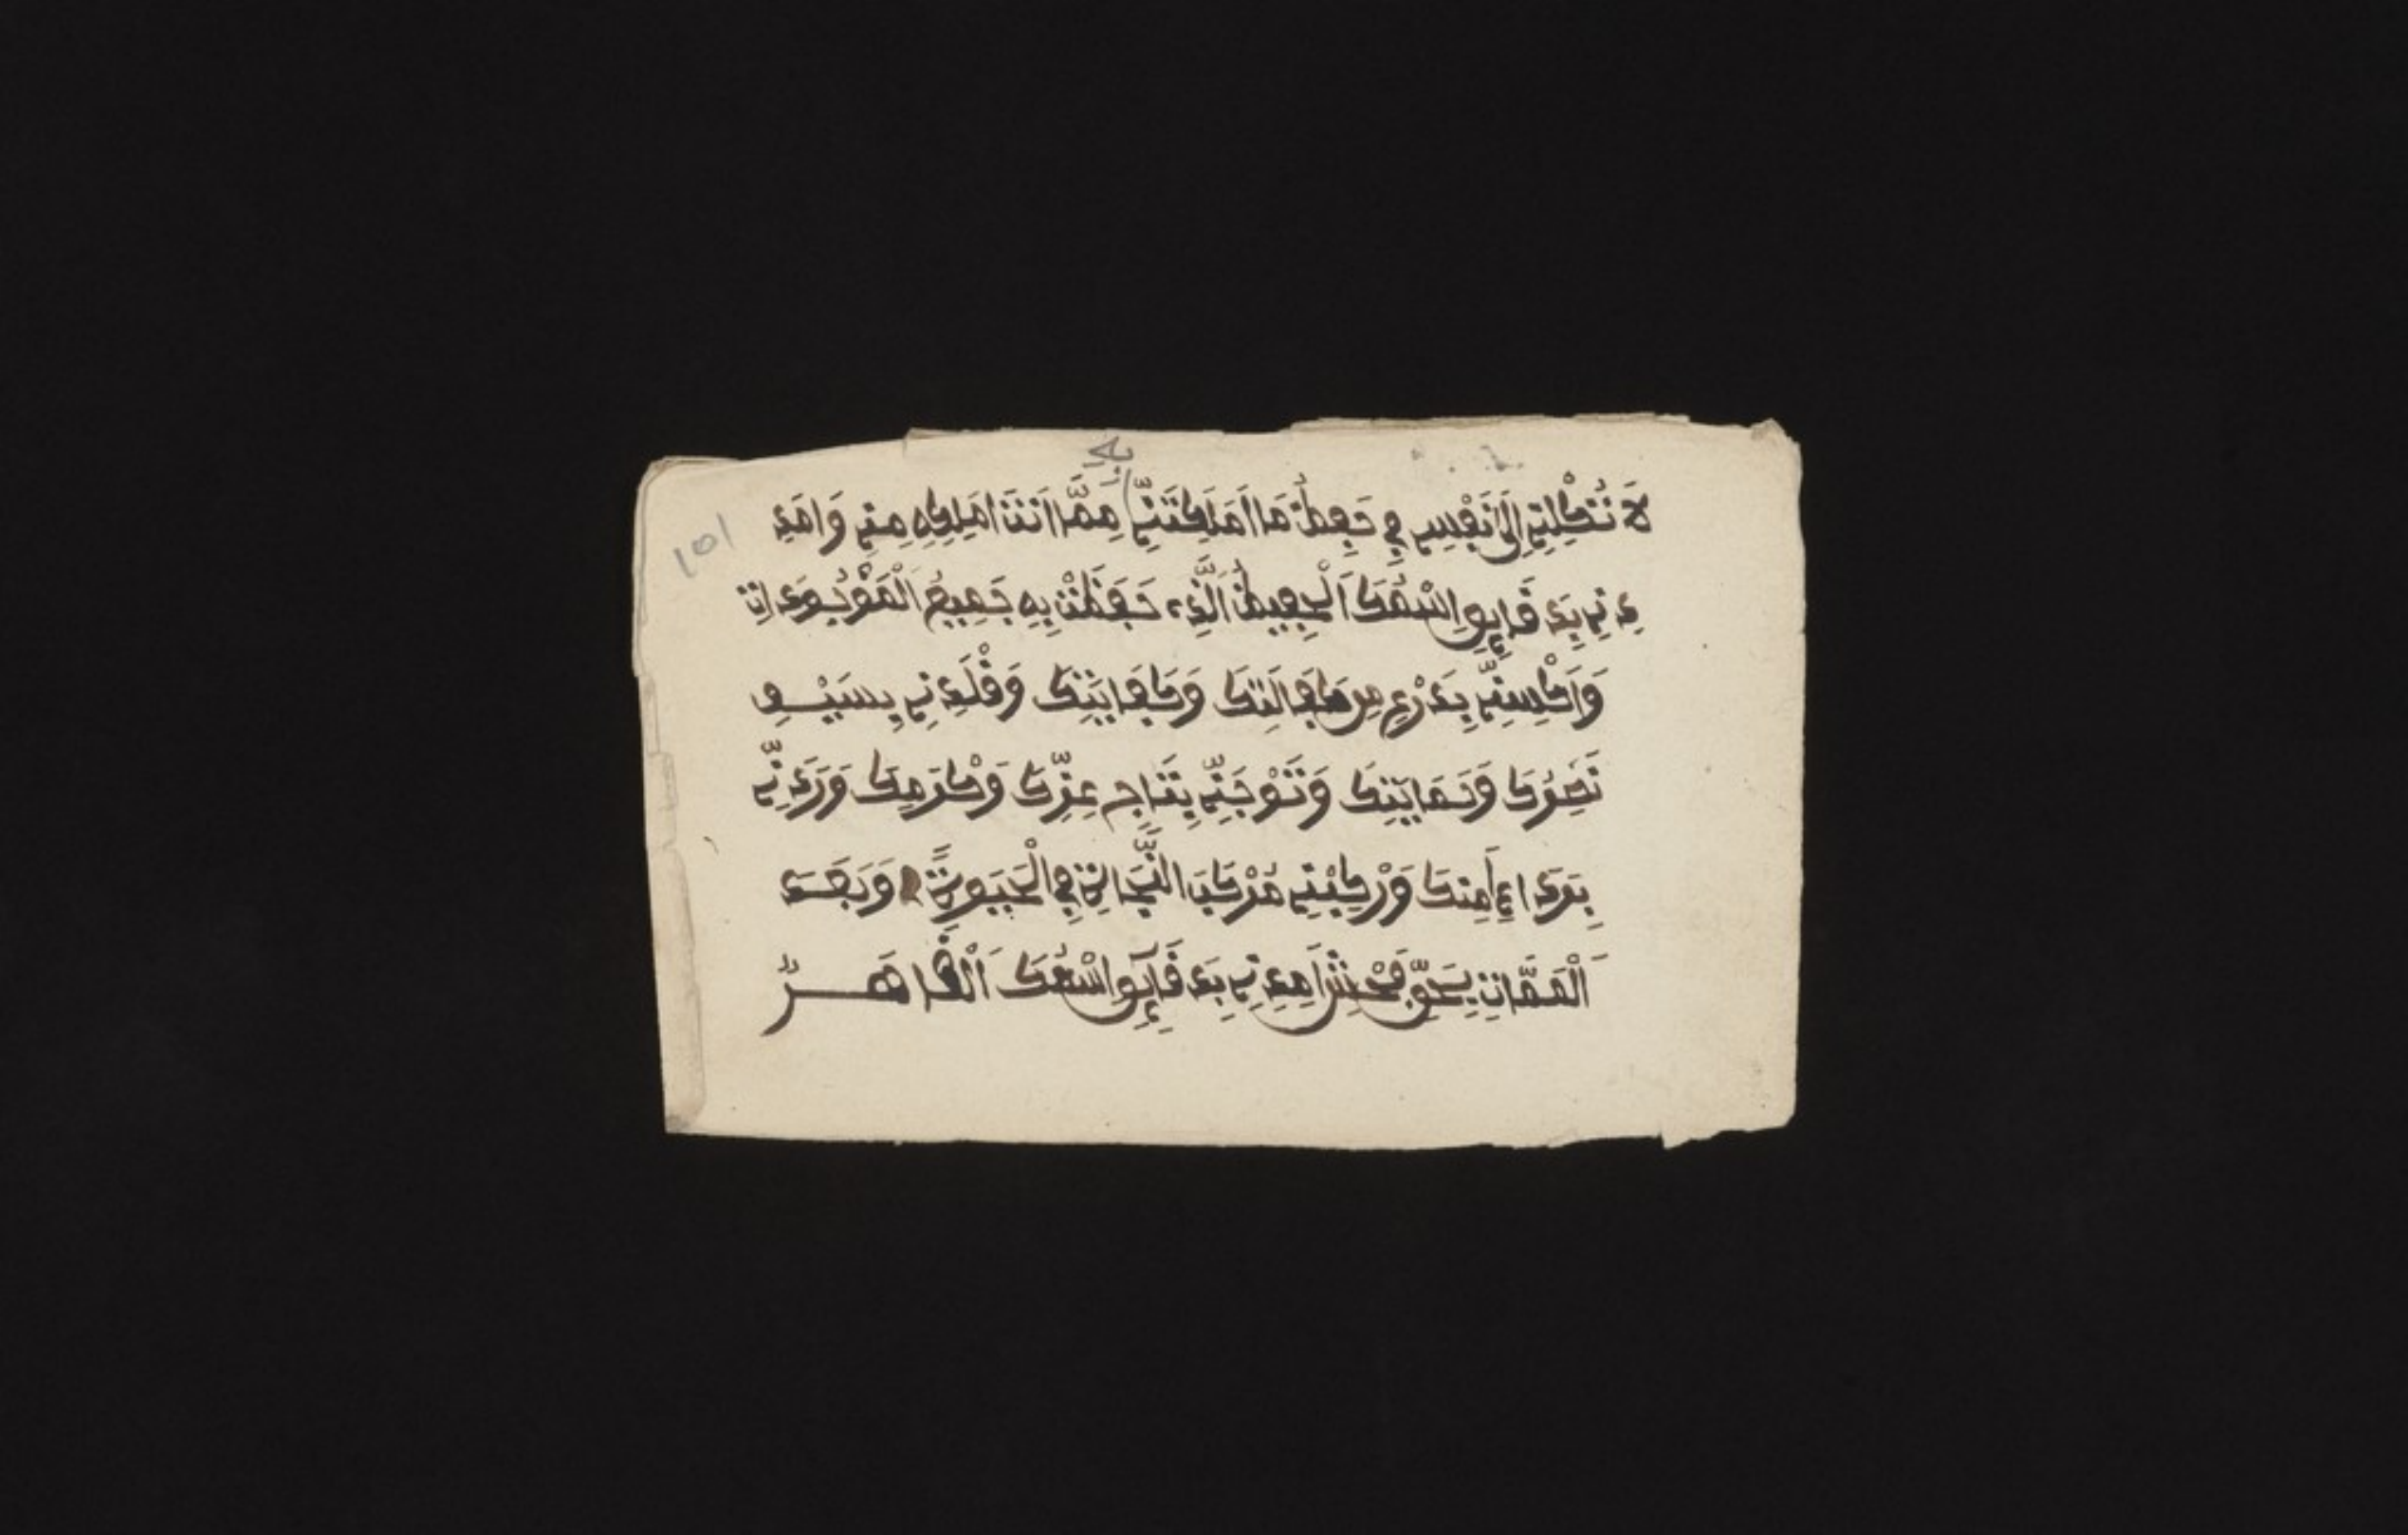 لَا تَكِلْنِي إِلَى نَفْسِي فِي حِفْظِ مَا أَمْلَكْتَنِي مِمَّا أَنْتَ أَمْلَكُ بِهِ مِنِّي وَأَمْدِ
دْنِي بِدَقَآئِقِ اسْمِكَ الْحَفِيظِ الَّذِي حَفَظْتَ بِهِ جَمِيعَ الْمَوْجُودَاتِ
وَاكْسِنِي بِدِرْعٍ مِنْ كَفَالَتِكَ وَكِفَايَتِكَ وَقَلِّدْنِي بِسَيْفِ
نَصْرِكَ وَحِمَايَتِكَ وَتَوِّجْنِي بِتَاجِ عِزِّكَ وَكَرَمِكَ وَرَدِّنِي
بِرِدَاءٍ مِنْكَ وَرَكِّبْنِي مَرْكَبَ النَّجَاةِ فِي الْحَيَوةِ وَبَعْدَ
الْمَمَاتِ بِحَقِّ فَجَشٍ أَمْدِدْنِي بِدَقَآئِقِ اسْمِكَ الْقَاهِرُ